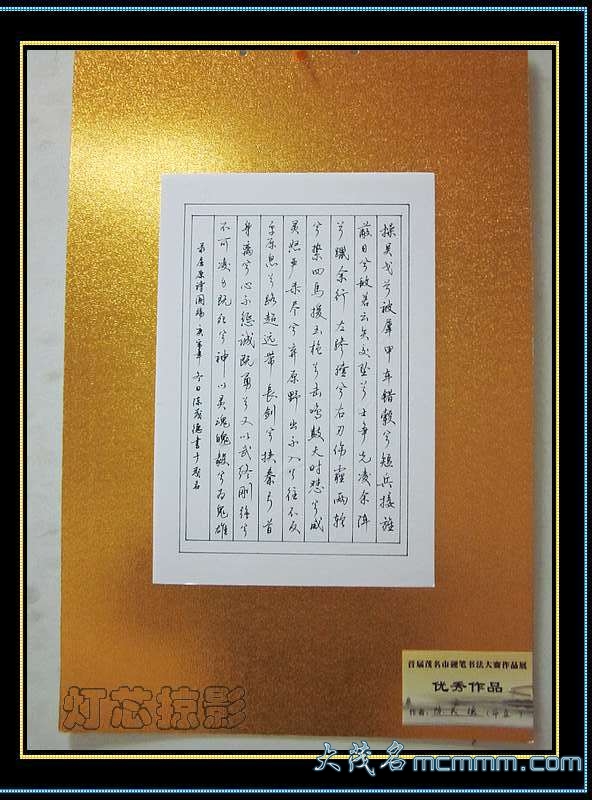 操吴戈兮被犀甲车错毂兮短兵接旌
蔽日兮敌若云矢交坠兮士争先凌余阵
兮躐余行左骖殪兮右刃伤霾两轮
兮絷四马援玉枹兮击鸣鼓天时怼兮威
灵怒严杀尽兮弃原野出不入兮往不反
平原忽兮路超远带長剑兮挟秦弓首
身离兮心不惩诚既勇兮又以武终刚强兮
不可凌身既死兮神以灵魂魄毅兮为鬼雄
录屈原诗国殇 庚寅年冬日陈茂德书于茂名
首届茂名市硬笔书法大赛作品展
优秀作品
作者：陈茂德
灯芯掠影
大茂名mcmmm.com